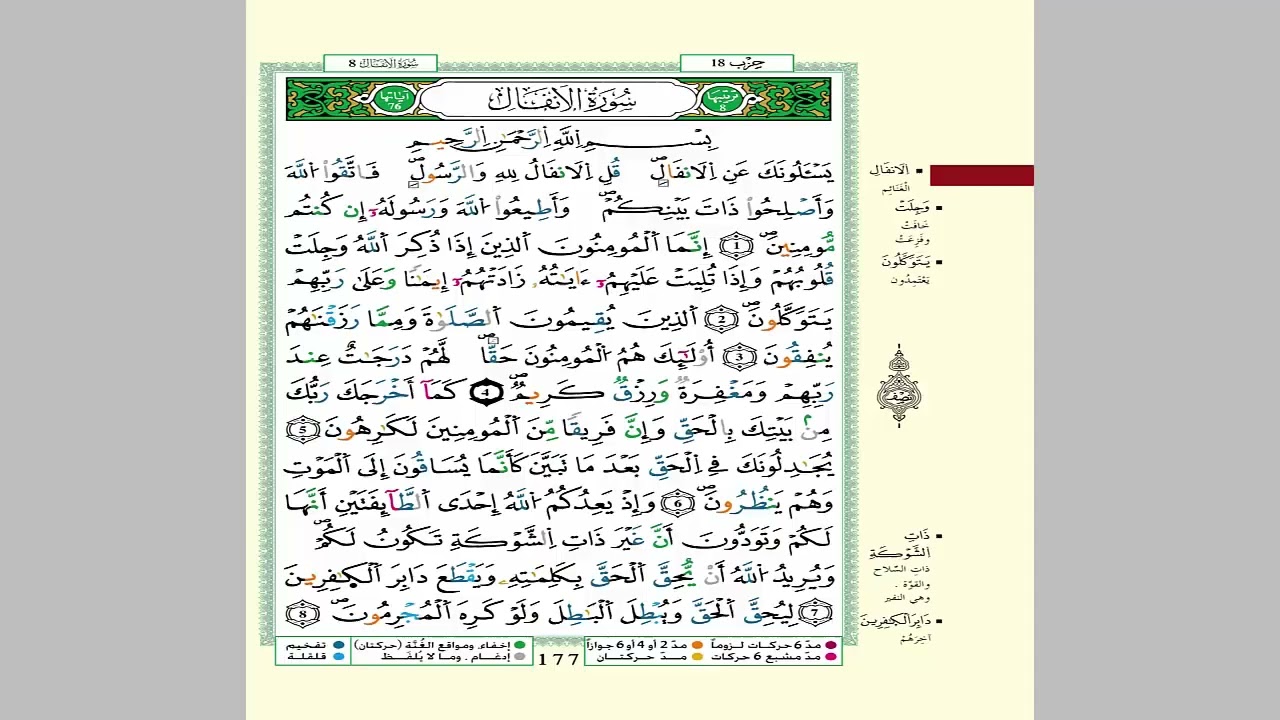 سُورَةُ الأنفَالِ 8
حِزْب 18
آيَاتُهَا 76
سُورَةُ الَانفَالِ
تَرْتِيبُهَا 8
بِسْمِ اِللَّهِ اِلرَّحْمَٰنِ اِلرَّحِيمِ
يَسْـَٔلُونَكَ عَنِ اِلَانفَالِۖ قُلِ اِلَانفَالُ لِلهِ وَالرَّسُولِۖ فَاتَّقُواْ اُللَّهَ
وَأَصْلِحُواْ ذَاتَ بَيْنِكُمْۖ وَأَطِيعُواْ اُللَّهَ وَرَسُولَهُۥٓ إِن كُنتُم
مُّومِنِينَۖ 1 إِنَّمَا اَلْمُومِنُونَ اَلذِينَ إِذَا ذُكِرَ اَللَّهُ وَجِلَتْ
قُلُوبُهُمْ وَإِذَا تُلِيَتْ عَلَيْهِمُۥٓ ءَايَٰتُهُۥ زَادَتْهُمُۥٓ إِيمَٰنًا وَعَلَىٰ رَبِّهِمْ
يَتَوَكَّلُونَۖ 2 اَلذِينَ يُقِيمُونَ اَلصَّلَوٰةَ وَمِمَّا رَزَقْنَٰهُمْ
يُنفِقُونَ 3 أُوْلَٰٓئِكَ هُمُ اُلْمُومِنُونَ حَقّٗاۖ لَّهُمْ دَرَجَٰتٌ عِندَ
رَبِّهِمْ وَمَغْفِرَةٌ وَرِزْقٌ كَرِيمٌۖ 4 كَمَآ أَخْرَجَكَ رَبُّكَ
مِنۢ بَيْتِكَ بِالْحَقِّ وَإِنَّ فَرِيقًا مِّنَ اَلْمُومِنِينَ لَكَٰرِهُونَ 5
يُجَٰدِلُونَكَ فِي اِلْحَقِّ بَعْدَ مَا تَبَيَّنَ كَأَنَّمَا يُسَاقُونَ إِلَى اَلْمَوْتِ
وَهُمْ يَنظُرُونَۖ 6 وَإِذْ يَعِدُكُمُ اُللَّهُ إِحْدَى اَلطَّآئِفَتَيْنِ أَنَّهَا
لَكُمْ وَتَوَدُّونَ أَنَّ غَيْرَ ذَاتِ اِلشَّوْكَةِ تَكُونُ لَكُمْۖ
وَيُرِيدُ اُللَّهُ أَنْ يُّحِقَّ اَلْحَقَّ بِكَلِمَٰتِهِۦ وَيَقْطَعَ دَابِرَ اَلْكٰ۪فِرِينَ
7 لِيُحِقَّ اَلْحَقَّ وَيُبْطِلَ اَلْبَٰطِلَ وَلَوْ كَرِهَ اَلْمُجْرِمُونَۖ 8
اِلَانفَالِ
الْغَنَائِمِ
وَجِلَتْ
خَافَتْ
وفَزِعَتْ
يَتَوَكَّلُونَ
يَعْتَمِدُون
نِصْف
ذَاتِ
اِلشَّوْكَةِ
ذاتِ السّلاح
والقوّة .
وهي النفير
دَابِرَ اَلْكٰ۪فِرِينَ
آخِرَهُمْ
مدّ 6 حركات لـزوماً
مدّ 2 أو 4 أو 6 جوازاً
مدّ مشبع 6 حركات
مـدّ حـركـتـان
177
إخفاء، ومواقع الغُنَّة (حركتان)
إدغام . وما لا يُلفَظ
تفخيم
قلقلة